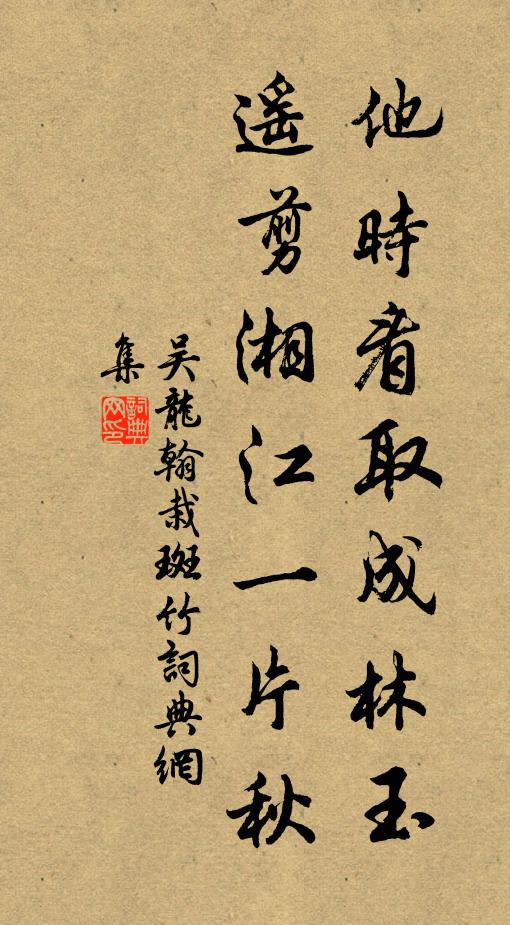 他時看取成林玉
遥剪湘江一片秋
吴龍翰栽斑竹詞典網
集
詞典網印